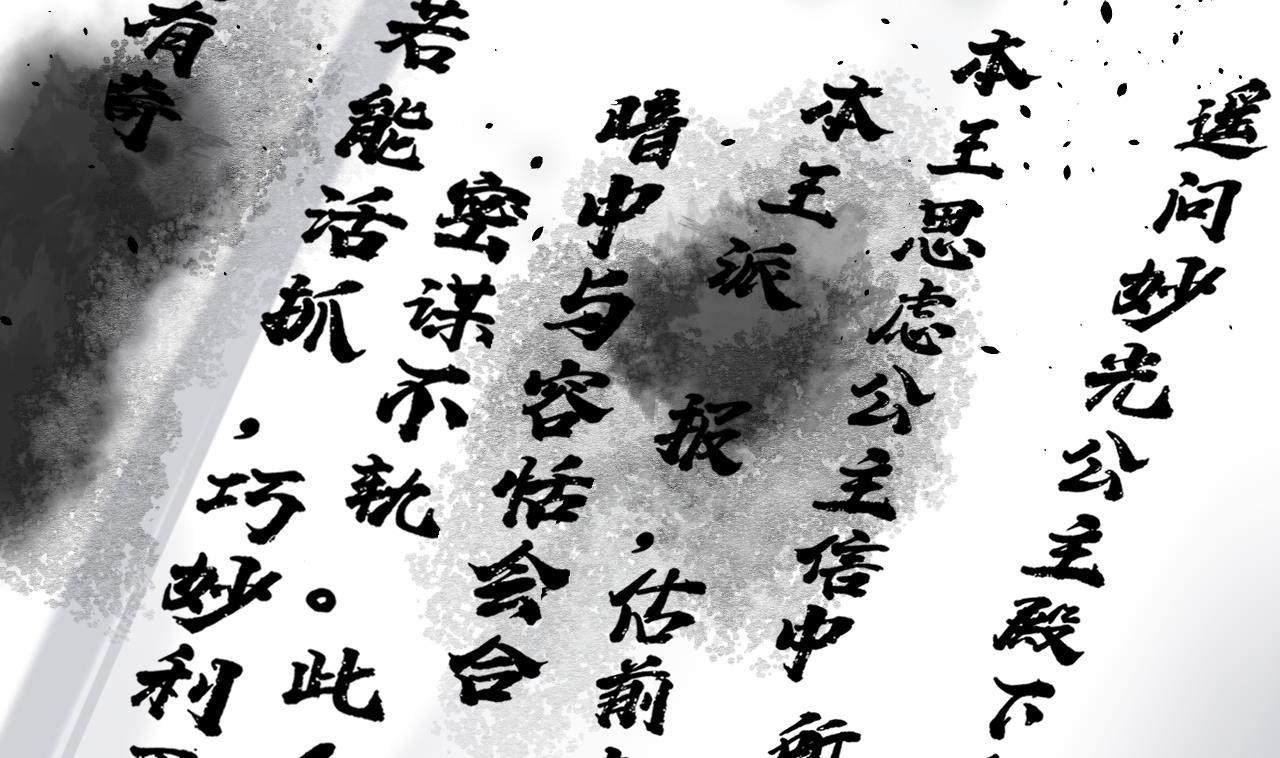 遥问妙光公主殿下
本王思虑公主信中所
本王派报，估前
暗中与容恬会合
密谋不轨。此
若能活抓，巧妙利
有